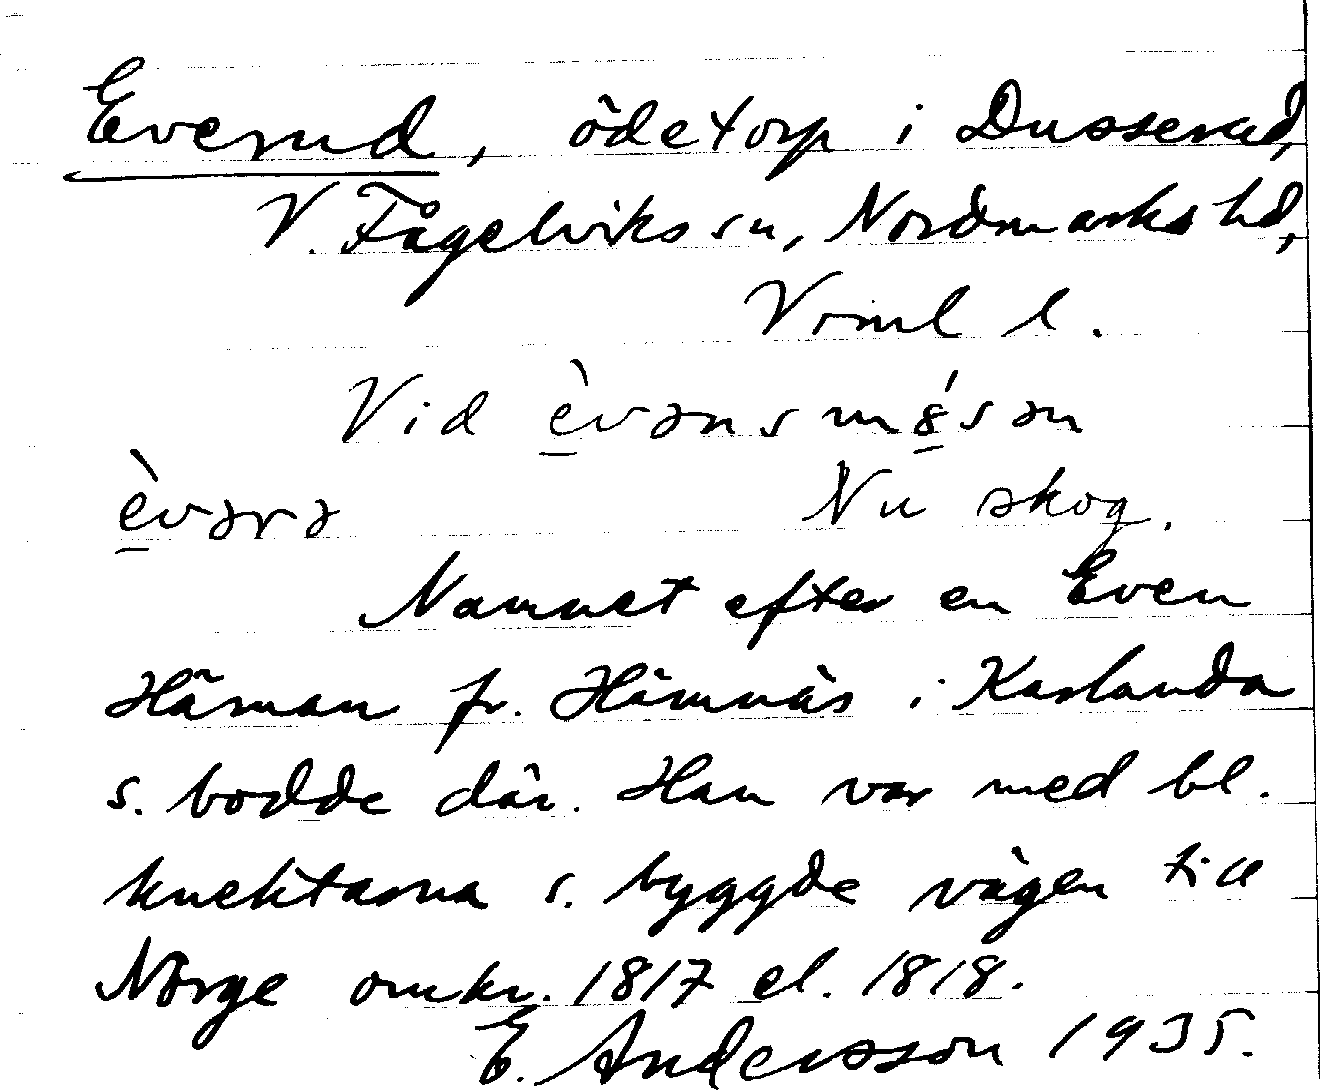 Everud, ödetorp i Dusserud,
V. Fågelviks sn, Nordmarks hd,
Vrml l.
Vid èvəns mǿsən
èvərə Nu skog.
Namnet efter en Even
Häman fr. Hämnäs i Karlanda
s. bodde där. Han var med bl.
knektarna s. byggde vägen till
Norge omkr. 1817 el. 1818.
E. Andersson 1935.